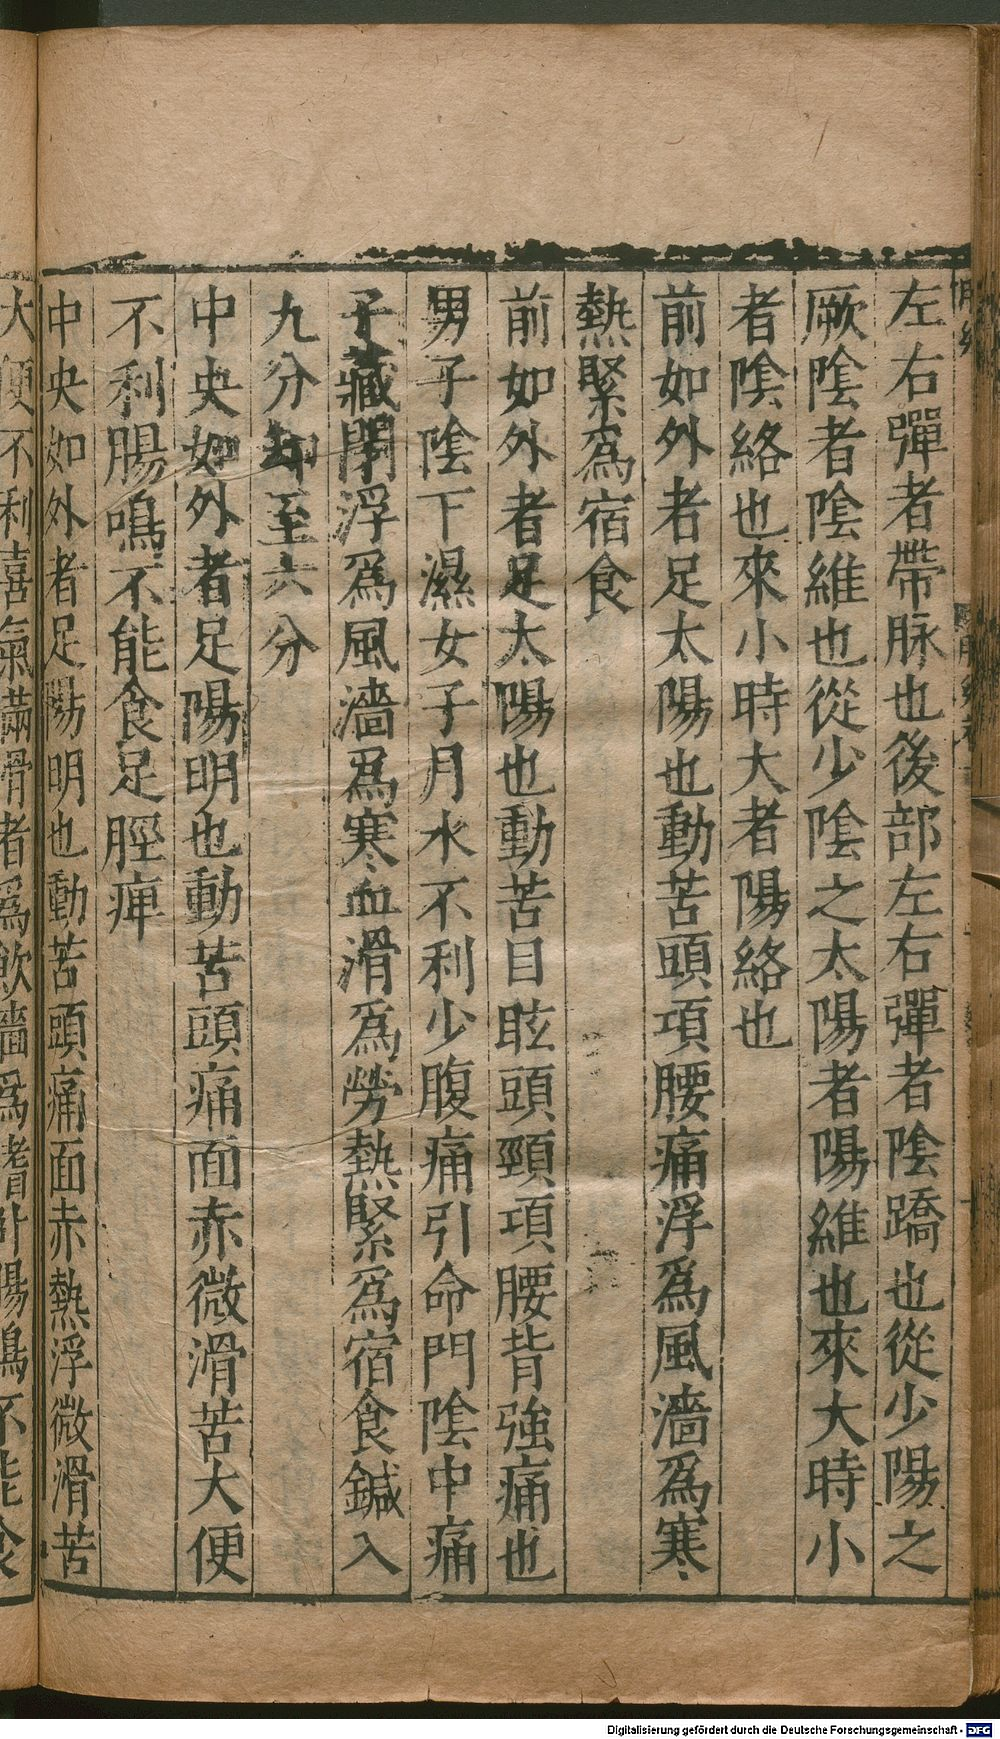 左右彈者帶脉也後部左右彈者陰蹻也從少陽之
厥陰者陰維也從少陰之太陽者陽維也來大時小
者陰絡也來小時大者陽絡也
前如外者足太陽也動苦頭項腰痛浮爲風濇爲寒
熱緊爲宿食
前如外者足太陽也動苦目眩頭頸項腰背強痛也
男子陰下濕女子月水不利少腹痛引命門陰中痛
子藏閉浮爲風濇爲寒血滑爲勞熱緊爲宿食鍼入
九分却至六分
中央如外者足陽明也動苦頭痛面赤微滑苦大便
不利腸鳴不能食足脛痺
中央如外者足陽明也動苦頭痛面赤熱浮微滑苦
大便不利喜氣滿滑者爲飲濇爲嗜卧腸鳴不能食
Digitalisierung gefördert durch die Deutsche Forschungsgemeinschaft - DFG